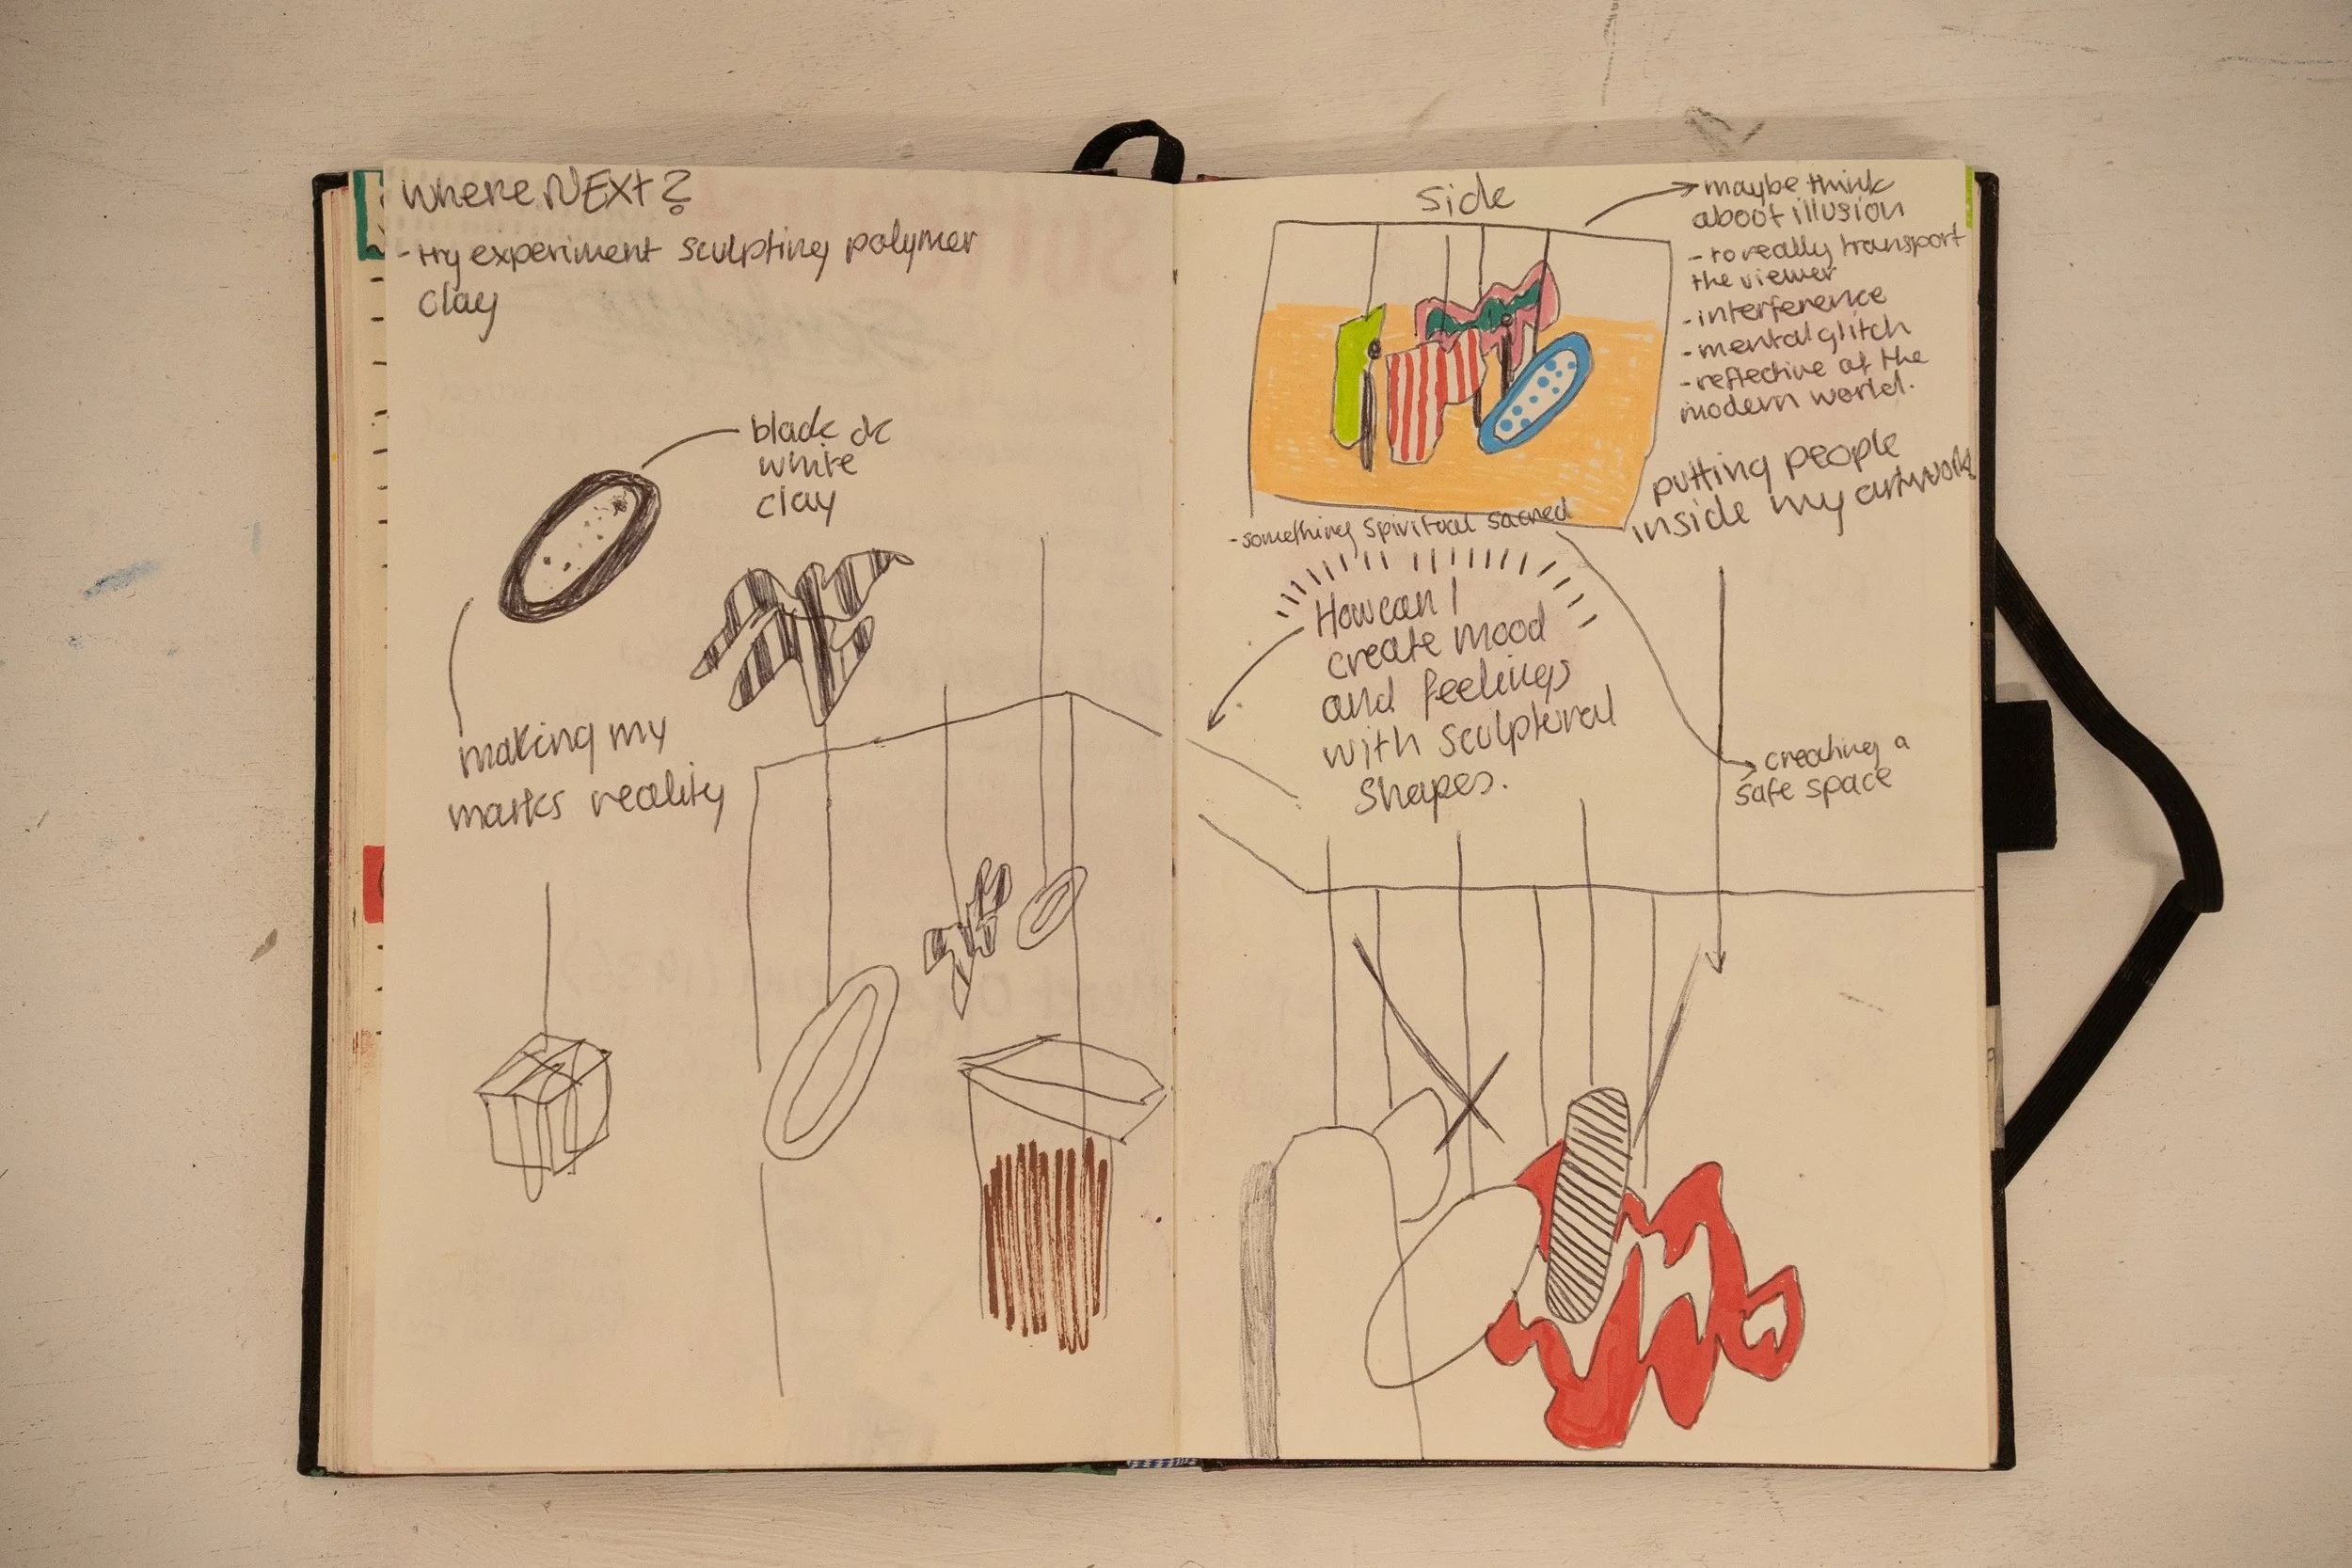 Where NEXT?
- try experiment sculpting polymer
clay
black &
white
clay
making my
marks reality
Side
maybe think
about illusion
- to really transport
the viewer
- interference
- mental glitch
- reflective of the
modern world.
putting people
inside my artwork
- something spiritual sacred
How can I
create mood
and feelings
with sculptural
shapes.
creating a
safe space